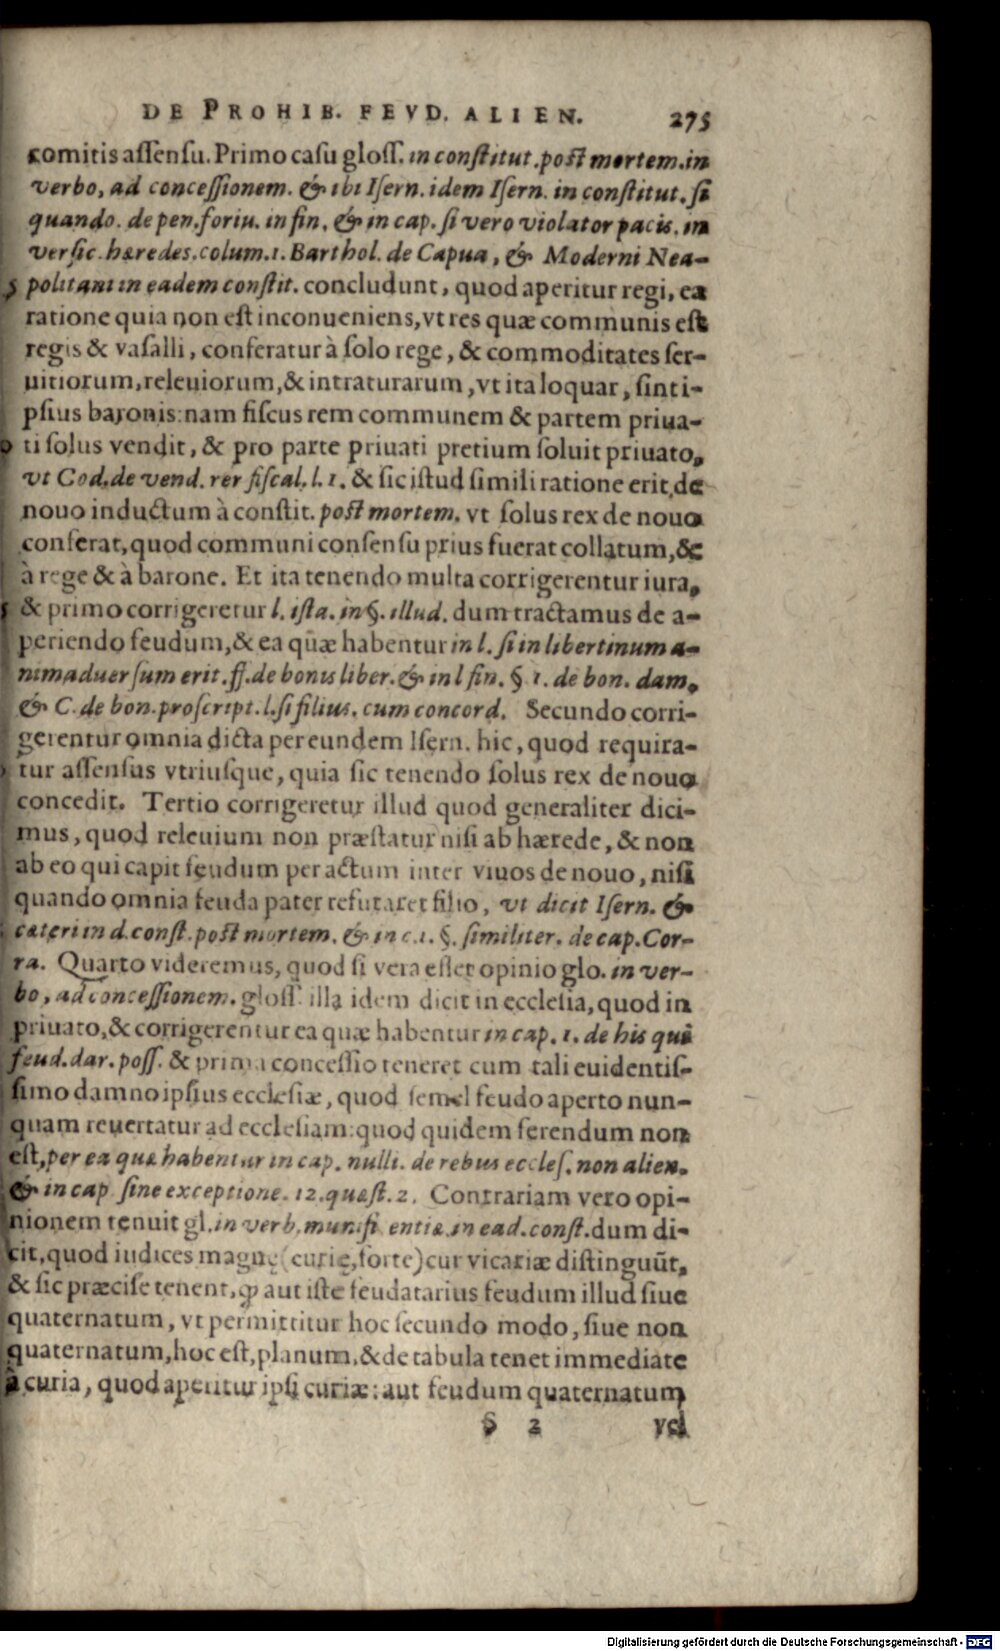 DE PROHIB. FEVD. ALIEN. 275
comitis assensu. Primo casu gloss. in constitut. post mortem. in
verbo, ad concessionem. & ibi Isern. idem Isern. in constitut. si
quando. de pen. foriu. in fin. & in cap. si vero violator pacis. in
versic. hæredes. colum. 1. Barthol. de Capua, & Moderni Nea-
5 politani in eadem constit. concludunt, quod aperitur regi, ea
ratione quia non est inconueniens, vt res quæ communis est
regis & vasalli, conferatur à solo rege, & commoditates ser-
uitiorum, releuiorum, & intraturarum, vt ita loquar, sint i-
psius baronis: nam fiscus rem communem & partem priua-
ti solus vendit, & pro parte priuati pretium soluit priuato,
vt Cod. de vend. rer fiscal. l. 1. & sic istud simili ratione erit, de
nouo inductum à constit. post mortem. vt solus rex de nouo
conferat, quod communi consensu prius fuerat collatum, &
à rege & à barone. Et ita tenendo multa corrigerentur iura,
& primo corrigeretur l. ista. in §. illud. dum tractamus de a-
periendo feudum, & ea quæ habentur in l. si in libertinum a-
nimaduersum erit. ff. de bonis liber. & in l fin. § 1. de bon. dam.
& C. de bon. proscript. l. si filius. cum concord. Secundo corri-
gerentur omnia dicta per eundem Isern. hic, quod requira-
tur assensus vtriusque, quia sic tenendo solus rex de nouo
concedit. Tertio corrigeretur illud quod generaliter dici-
mus, quod releuium non præstatur nisi ab hærede, & non
ab eo qui capit feudum per actum inter viuos de nouo, nisi
quando omnia feuda pater refutaret filio, vt dicit Isern. &
cæteri in d. const. post mortem. & in c. 1. §. similiter. de cap. Cor-
ra. Quarto videremus, quod si vera esset opinio glo. in ver-
bo, ad concessionem. gloss illa idem dicit in ecclesia, quod in
priuato, & corrigerentur ea quæ habentur in cap. 1. de his qui
feud. dar. poss. & prima concessio teneret cum tali euidentis-
simo damno ipsius ecclesiæ, quod semel feudo aperto nun-
quam reuertatur ad ecclesiam: quod quidem ferendum non
est, per ea quæ habentur in cap. nulli. de rebus eccles. non alien.
& in cap sine exceptione. 12. quæst. 2. Contrariam vero opi-
nionem tenuit gl. in verb. munifi entiæ. in ead. const. dum di-
cit, quod iudices magnę (curię, forte) cur vicariæ distinguūt,
& sic præcise tenent, ꝙ aut iste feudatarius feudum illud siue
quaternatum, vt permittitur hoc secundo modo, siue non
quaternatum, hoc est, planum, & de tabula tenet immediate
à curia, quod aperitur ipsi curiæ: aut feudum quaternatum
S 2 vel
Digitalisierung gefördert durch die Deutsche Forschungsgemeinschaft - DFG